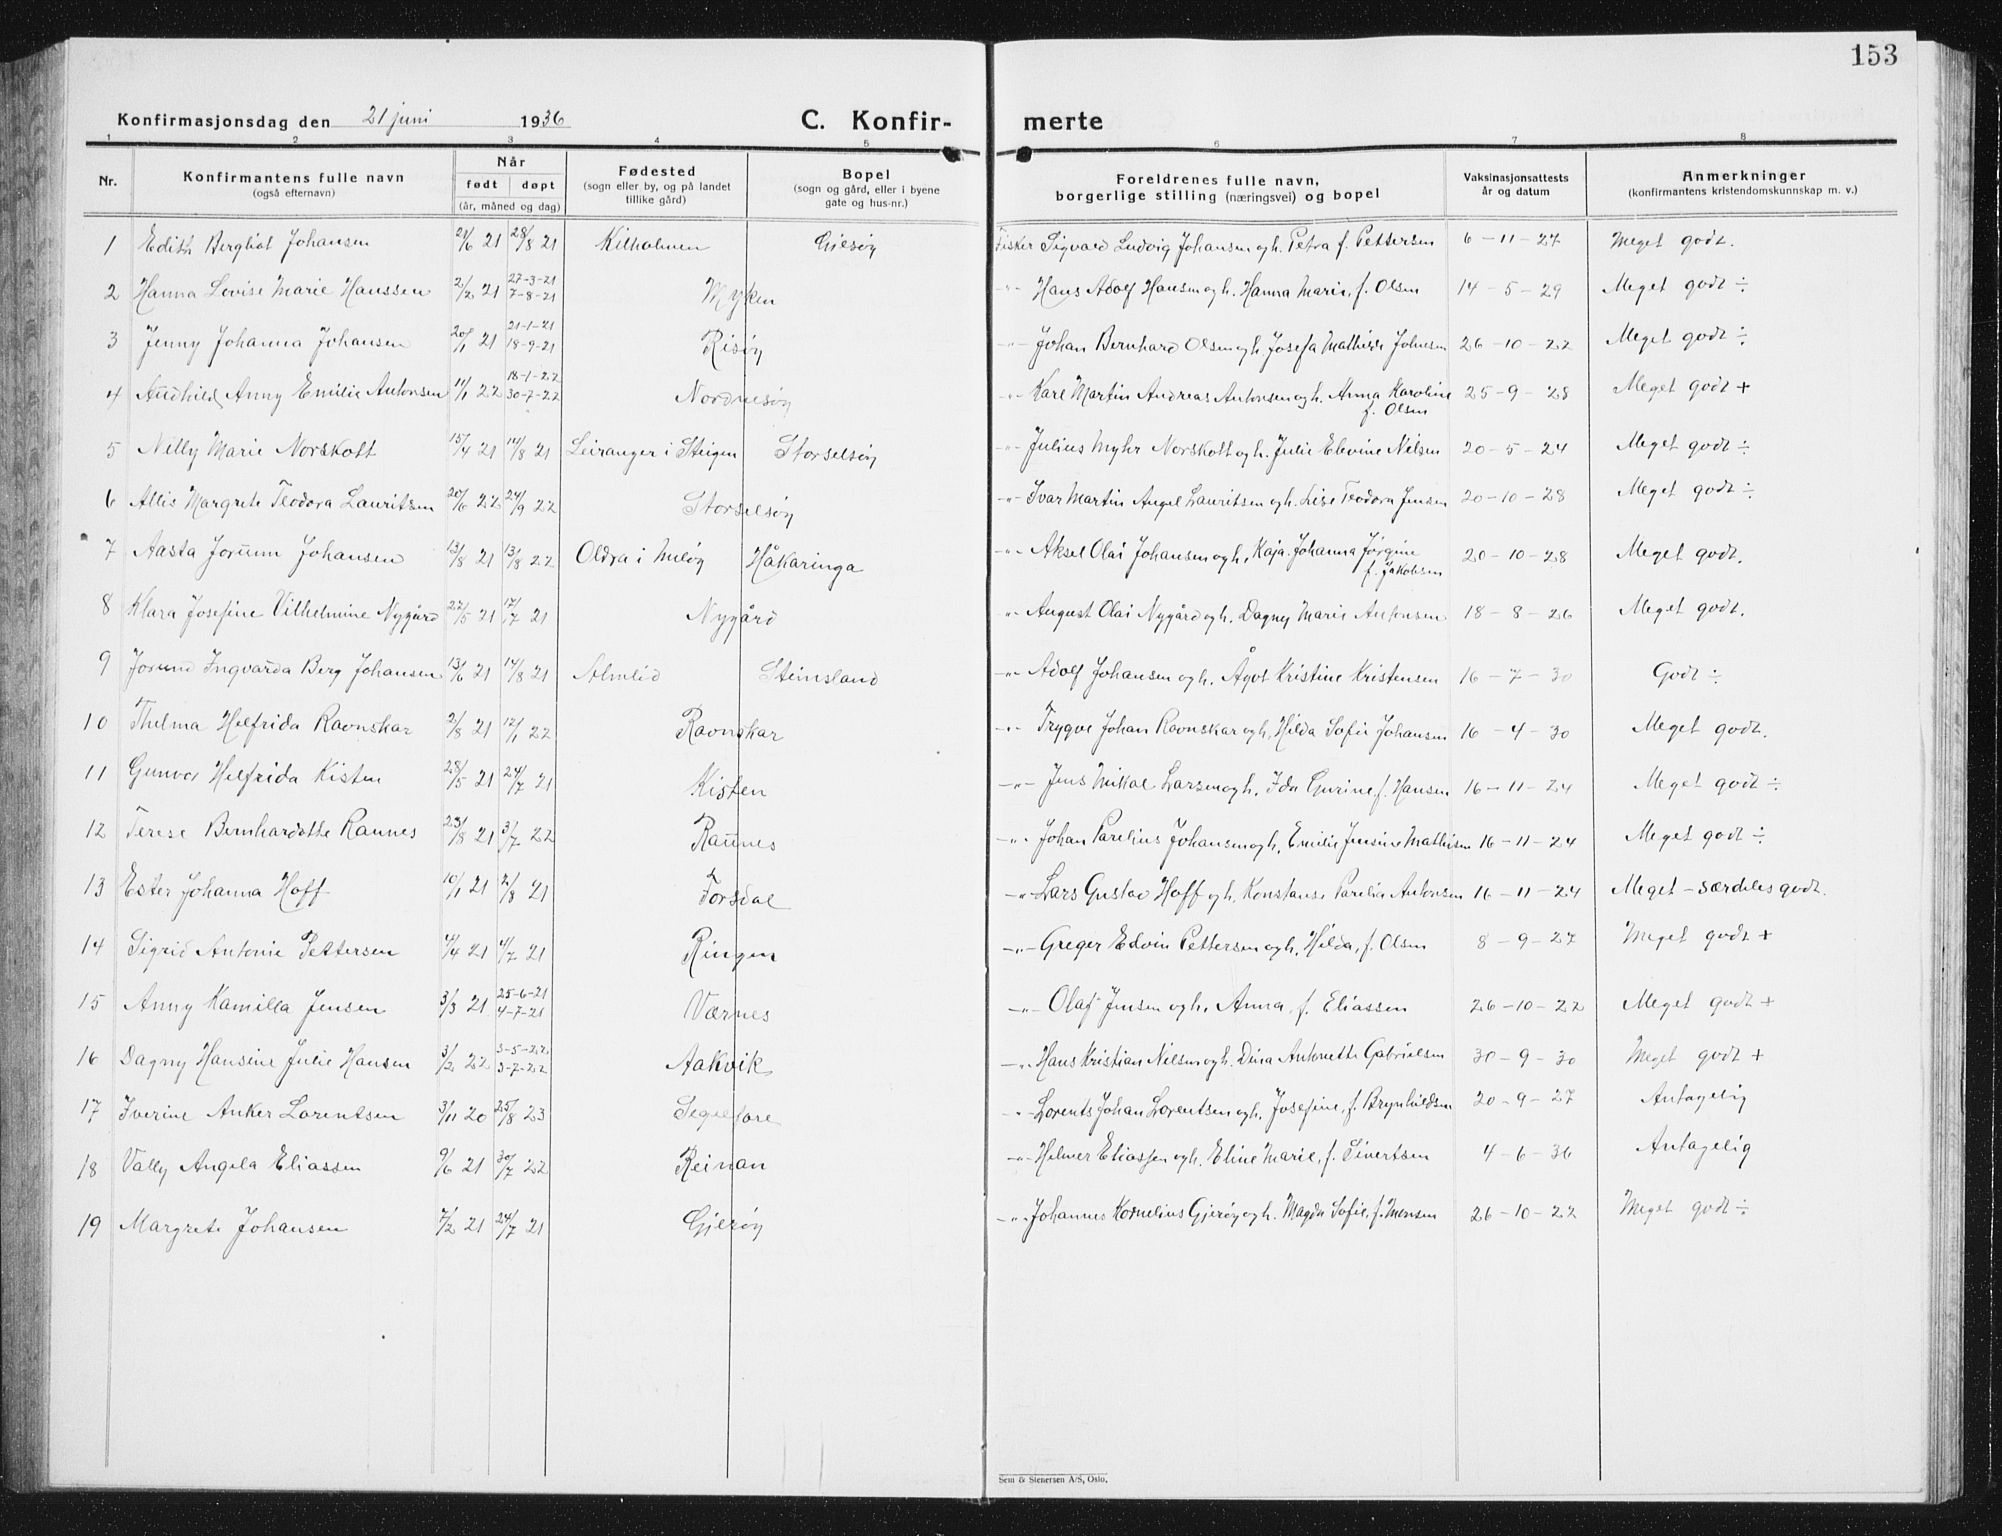 153
Konfirmasjonsdag den 21 juni 1936 C. Konfir- merte
1 2 3 4 5 6 7 8
Nr. Konfirmantens fulle navn (også efternavn) Når født døpt (år, måned og dag) Fødested (sogn eller by, og på landet tillike gård) Bopel (sogn og gård, eller i byene gate og hus-nr.) Foreldrenes fulle navn, borgerlige stilling (næringsvei) og bopel Vaksinasjonsattests år og datum Anmerkninger (konfirmantens kristendomskunnskap m. v.)
1 Edith Bergliot Johansen 21/6 21 28/8 21 Kilholmen Gjesøy Fisker Sigvard Ludvig Johansen og h. Petra f. Pettersen 6-11-27 Meget godt.
2 Hanna Lovise Marie Hanssen 2/2 21 27-3-21 7-8-21 Myken -"- Hans Adolf Hansen og h. Hanna Marie, f. Olsen 14-5-29 Meget godt ÷
3 Jenny Johanna Johansen 20/1 21 21-1-21 18-9-21 Risøy -"- Johan Bernhard Olsen og h. Josefa Mathilde Johnsen 26-10-22 Meget godt ÷
4 Audhild Anny Emilie Antonsen 11/1 22 18-1-22 30-7-22 Nordnesøy -"- Karl Martin Andreas Antonsen og h. Anna Karoline f. Olsen 25-9-28 Meget godt +
5 Nelly Marie Norskott 15/4 21 14/8 21 Leiranger i Steigen Storselsøy -"- Julius Myhr Norskott og h. Julie Elevine Nilsen 20-5-24 Meget godt ÷
6 Allis Margrete Teodora Lauritsen 20/6 22 24/9 22 Storselsøy -"- Ivar Martin Angel Lauritsen og h. Lise Teodora Jensen 20-10-28 Meget godt ÷
7 Aasta Jorunn Johansen 13/8 21 13/8 22 Oldra i Meløy Håkaringa -"- Aksel Olai Johansen og h. Kaja Johanna Jørgine f. Jakobsen 20-10-28 Meget godt.
8 Klara Josefine Vilhelmine Nygård 22/5 21 17/7 21 Nygård -"- August Olai Nygård og h. Dagny Marie Antonsen 18-8-26 Meget godt.
9 Jorund Ingvarda Berg Johansen 13/6 21 14/8 21 Almlid Steinsland -"- Adolf Johansen og h. Ågot Kristine Kristensen 16-7-30 Godt ÷
10 Thelma Helfrida Ravnskar 2/8 21 12/1 22 Ravnskar -"- Trygve Johan Ravnskar og h. Hilda Sofie Johansen 16-4-30 Meget godt.
11 Gunvor Helfrida Kisten 28/5 21 24/7 21 Kisten -"- Jens Mikal Larsen og h. Ida Gurine, f. Hansen 16-11-24 Meget godt ÷
12 Terese Bernhardotte Raunes 23/8 21 3/7 22 Raunes -"- Johan Parelius Johansen og h. Emilie Jensine Mathisen 16-11-24 Meget godt ÷
13 Ester Johanna Hoff 10/1 21 2/8 21 Forsdal -"- Lars Gustav Hoff og h. Konstanse Parelia Antonsen 16-11-24 Meget - særdeles godt.
14 Sigrid Antonie Pettersen 4/4 21 4/7 21 Ringen -"- Greger Edvin Pettersen og h. Hilda, f. Olsen 8-9-27 Meget godt +
15 Anny Kamilla Jensen 3/3 21 25-6-21 4-7-21 Værnes -"- Olaf Jensen og h. Anna, f. Eliassen 26-10-22 Meget godt +
16 Dagny Hansine Julie Hansen 3/2 22 3-5-22 3-7-22 Aakvik -"- Hans Kristian Nilsen og h. Dina Antonette Gabrielsen 30-9-30 Meget godt +
17 Iverine Anker Lorentsen 3/11 20 25/8 23 Selsfore -"- Lorents Johan Lorentsen og h. Josefine, f. Brynhildsen 20-9-27 Antagelig
18 Vally Angela Eliassen 9/6 21 30/7 22 Reinan -"- Helmer Eliassen og h. Eline Marie, f. Sivertsen 4-6-36 Antagelig
19 Margrete Johansen 7/2 21 24/7 21 Gjerøy -"- Johannes Kornelius Gjerøy og h. Magda Sofie, f. Monsen 26-10-22 Meget godt ÷
Sem & Stenersen A/S, Oslo.